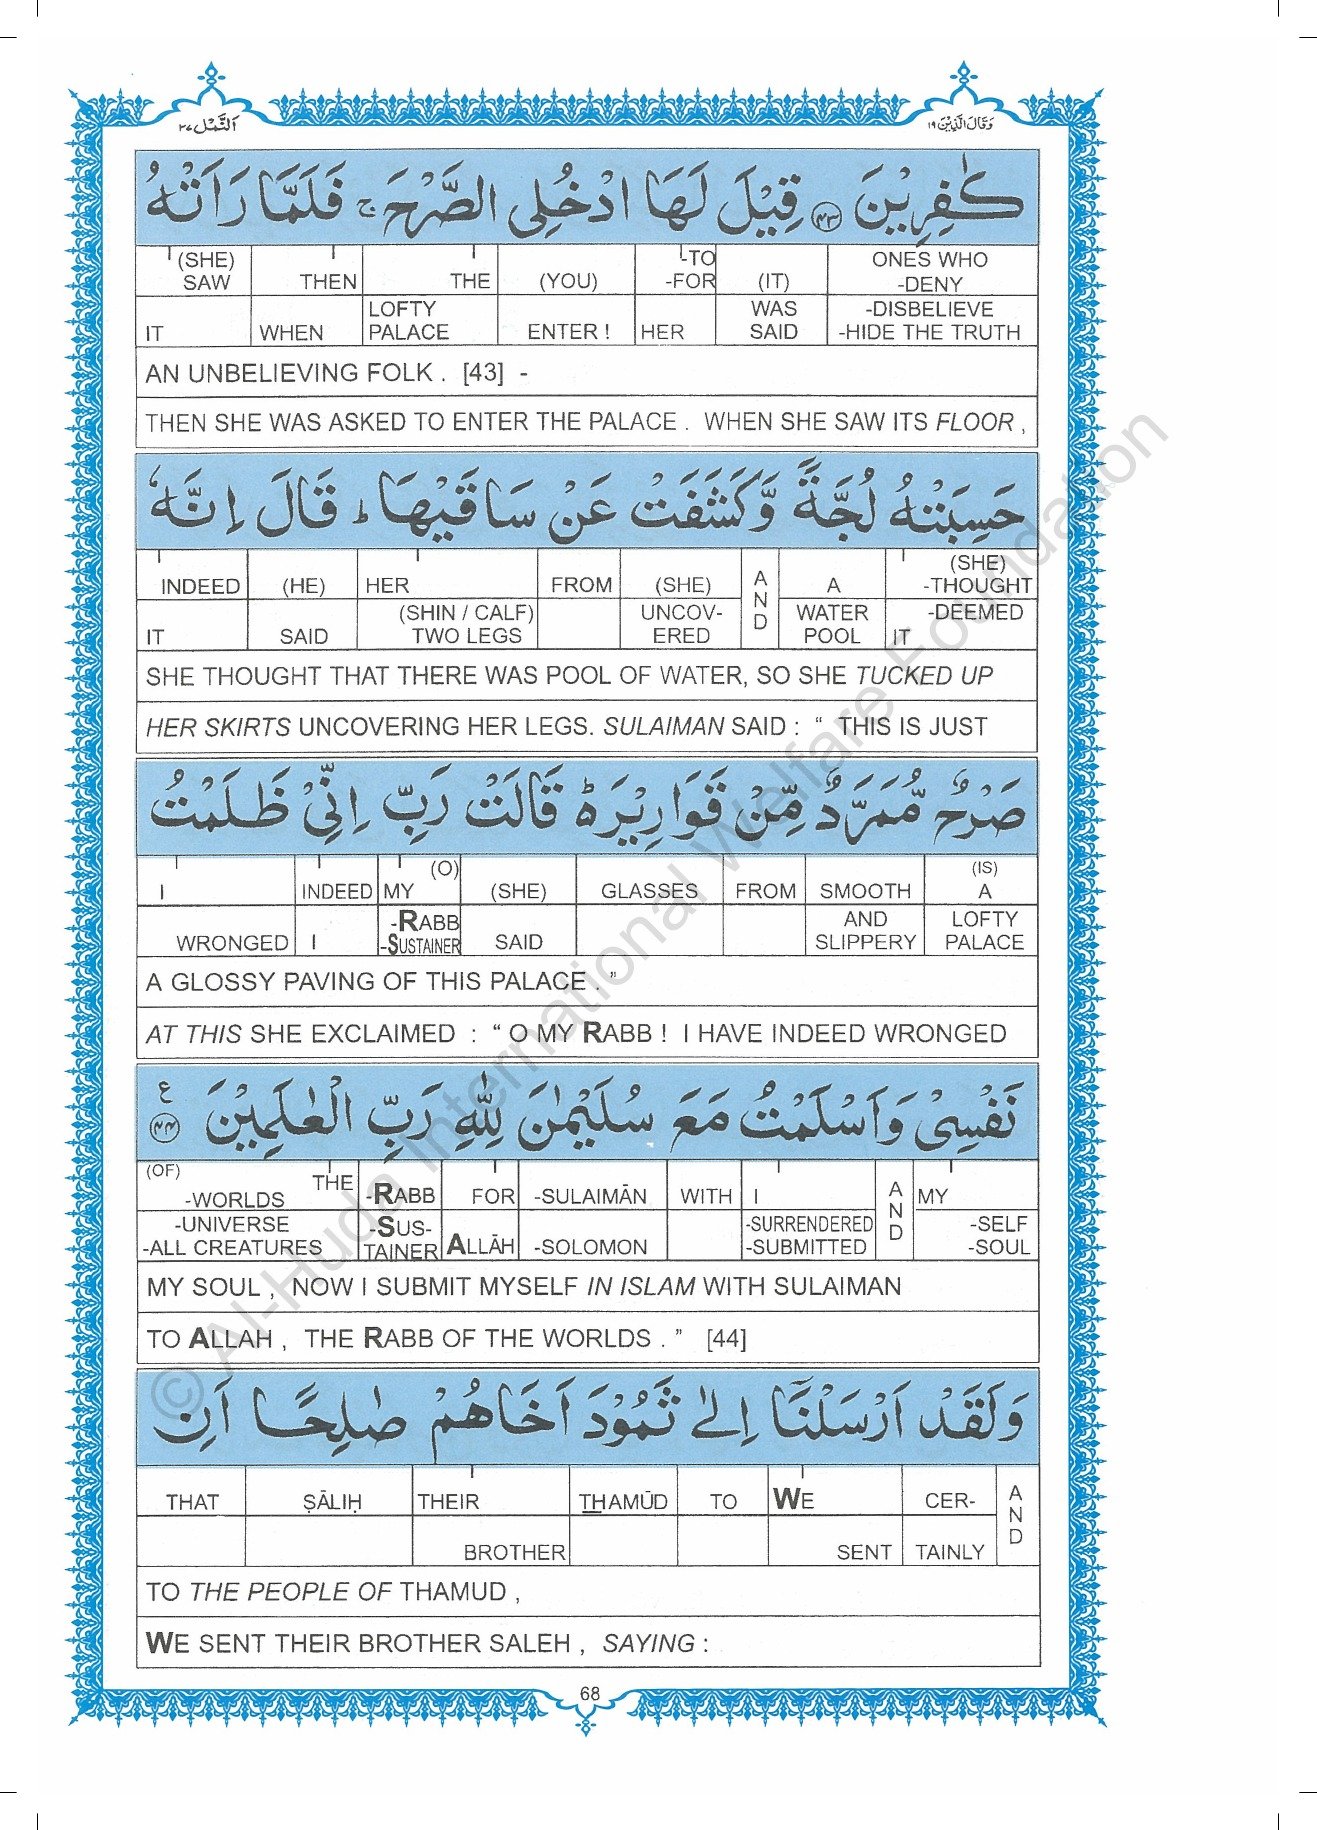 اَلنَّمْل ٢٧ وَقَالَ الَّذِیْنَ ١٩
كٰفِرِیْنَ ﴿٤٣﴾ قِیْلَ لَهَا ادْخُلِی الصَّرْحَ ۚ فَلَمَّا رَاَتْهُ
(SHE) SAW THEN THE (YOU) -TO -FOR (IT) ONES WHO -DENY
IT WHEN LOFTY PALACE ENTER ! HER WAS SAID -DISBELIEVE -HIDE THE TRUTH
AN UNBELIEVING FOLK . [43] -
THEN SHE WAS ASKED TO ENTER THE PALACE . WHEN SHE SAW ITS FLOOR ,
حَسِبَتْهُ لُجَّةً وَّكَشَفَتْ عَنْ سَاقَیْهَا ؕ قَالَ اِنَّهٗ
INDEED (HE) HER FROM (SHE) AND A (SHE) -THOUGHT
IT SAID (SHIN / CALF) TWO LEGS UNCOV- ERED WATER POOL -DEEMED IT
SHE THOUGHT THAT THERE WAS POOL OF WATER, SO SHE TUCKED UP
HER SKIRTS UNCOVERING HER LEGS. SULAIMAN SAID : “ THIS IS JUST
صَرْحٌ مُّمَرَّدٌ مِّنْ قَوَارِیْرَ ؕ۬ قَالَتْ رَبِّ اِنِّیْ ظَلَمْتُ
I INDEED MY (O) (SHE) GLASSES FROM SMOOTH (IS) A
WRONGED I -RABB -SUSTAINER SAID AND SLIPPERY LOFTY PALACE
A GLOSSY PAVING OF THIS PALACE . ”
AT THIS SHE EXCLAIMED : “ O MY RABB ! I HAVE INDEED WRONGED
نَفْسِیْ وَاَسْلَمْتُ مَعَ سُلَیْمٰنَ لِلّٰهِ رَبِّ الْعٰلَمِیْنَ ﴿٤٤﴾ ع
(OF) THE -WORLDS -RABB FOR -SULAIMĀN WITH I AND MY
-UNIVERSE -ALL CREATURES -SUS- TAINER ALLĀH -SOLOMON -SURRENDERED -SUBMITTED -SELF -SOUL
MY SOUL , NOW I SUBMIT MYSELF IN ISLAM WITH SULAIMAN
TO ALLAH , THE RABB OF THE WORLDS . ” [44]
وَلَقَدْ اَرْسَلْنَاۤ اِلٰی ثَمُوْدَ اَخَاهُمْ صٰلِحًا اَنِ
THAT ṢĀLIḤ THEIR THAMŪD TO WE CER- AND
BROTHER SENT TAINLY
TO THE PEOPLE OF THAMUD ,
WE SENT THEIR BROTHER SALEH , SAYING :
68
© Al-Huda International Welfare Foundation